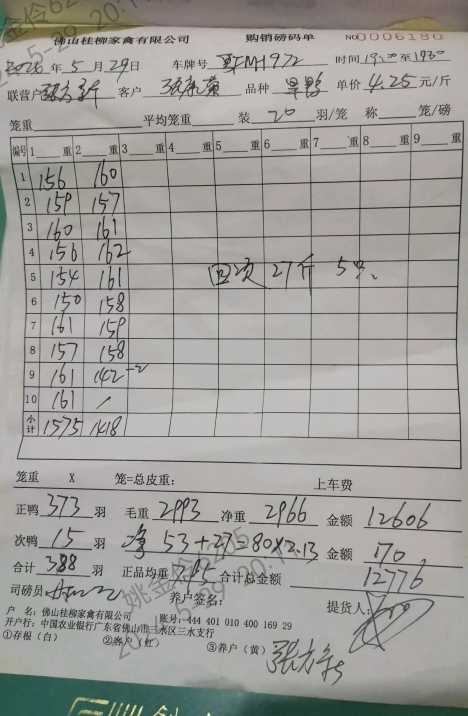 佛山桂柳家禽有限公司 购销磅码单 NO0006180
2026年5月29日 车牌号 FM1972 时间 至
联营户 客户 品种 单价4.25元/斤
笼重 平均笼重 装20羽/笼 称 笼/磅
编号 1 重 2 重 3 重 4 重 5 重 6 重 7 重 8 重 9 重
1 156 160
2 159 157
3 160 161
4 156 162
5 154 161 27斤 5只
6 150 158
7 161 159
8 157 158
9 161 142-2
10 161 /
小计 1575 1418
笼重 X 笼=总皮重: 上车费
正鸭373羽 毛重2993 净重2966 金额12606
次鸭15羽 净53+27=80×2.13 金额170
合计388羽 正品均重7.95 合计总金额12776
司磅员 养户签名: 提货人:
户 名:佛山桂柳家禽有限公司 账号:444 401 010 400 169 29
开户行:中国农业银行广东省佛山市三水区三水支行
①存根(白) ②客户(红) ③养户(黄)